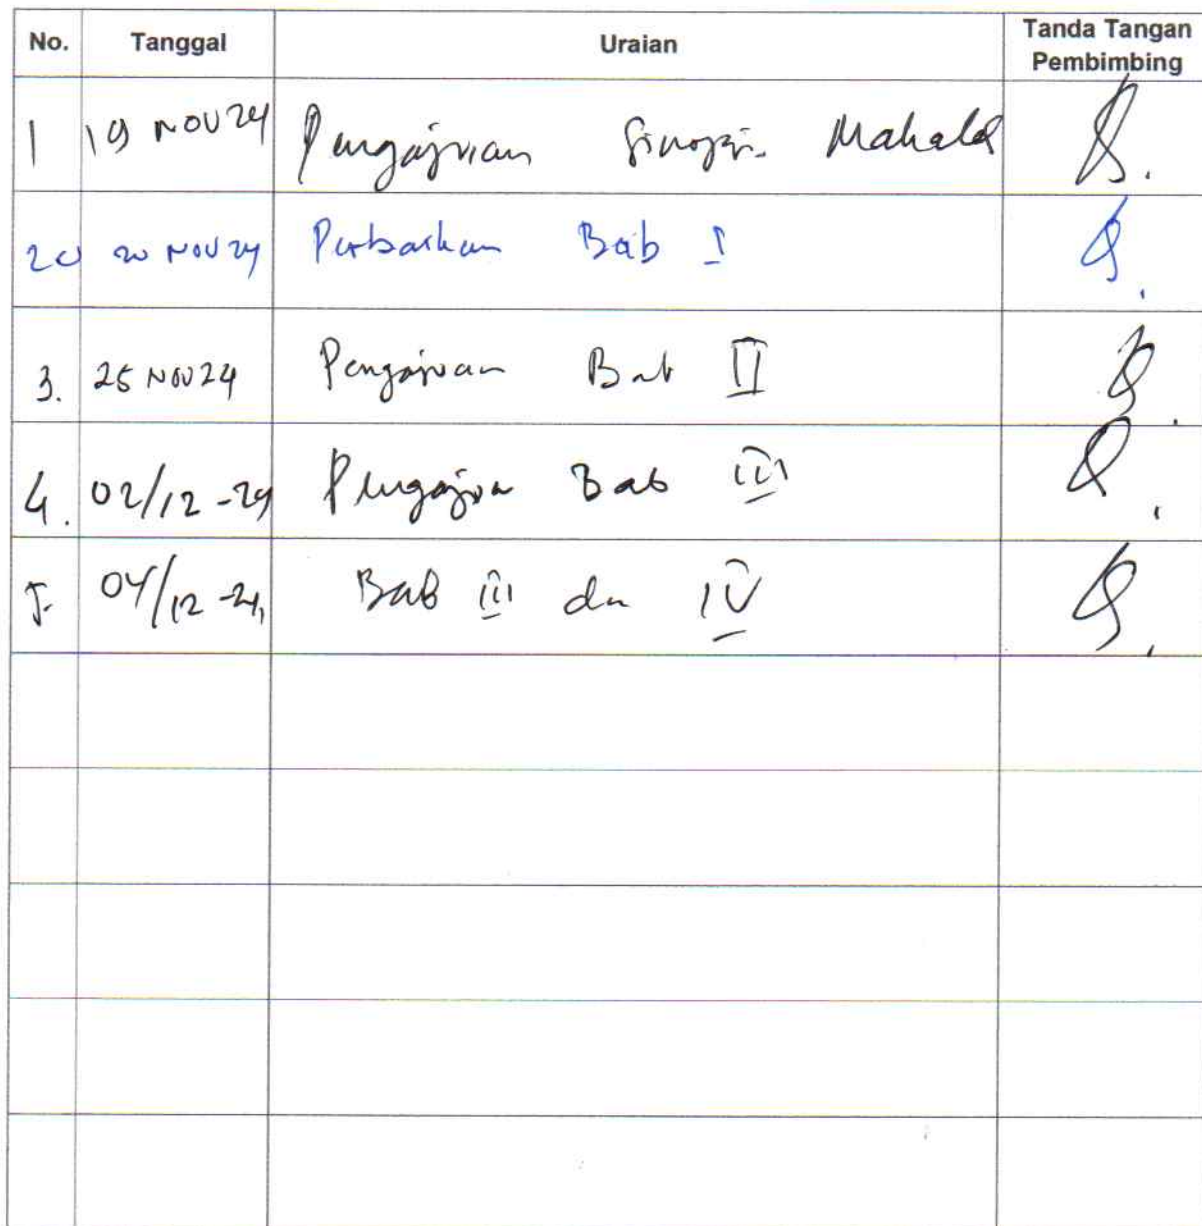 No. Tanggal Uraian Tanda Tangan Pembimbing
1 19 NOV 24 Pengajuan Sinopsis
20 NOV 24 Perbaikan Bab I
3. 25 NOV 24 Pengajuan Bab II
4. 02/12-24 Pengajuan Bab III
5. 04/12-24 Bab III dan IV